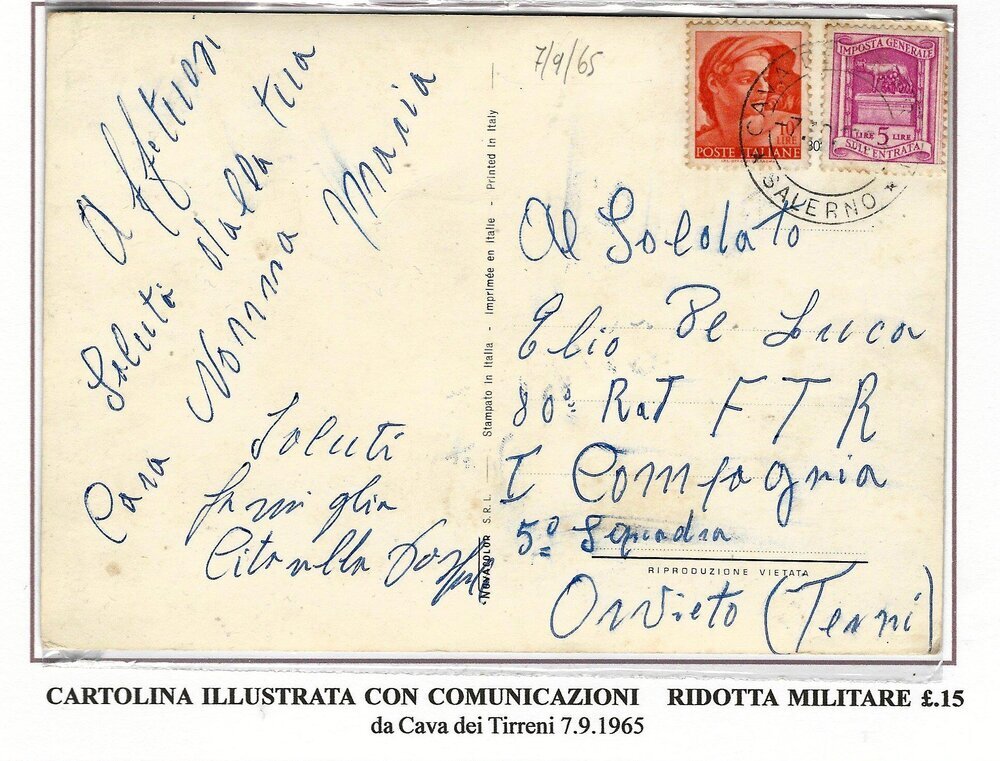 7/9/65
Affettuosi
Saluti dalla tua
Cara Nonna Maria
Saluti
famiglia
Citarella
NOVACOLOR S.R.L. - Stampato in Italia - Imprimée en Italie - Printed in Italy
10
LIRE
POSTE ITALIANE
IMPOSTA GENERALE
LIRE 5 LIRE
SULL'ENTRATA
CAVA
SALERNO *
Al Soldato
Elio De Luca
80º Rat F T R
I Compagnia
5º Squadra
RIPRODUZIONE VIETATA
Orvieto (Terni)
CARTOLINA ILLUSTRATA CON COMUNICAZIONI RIDOTTA MILITARE £.15
da Cava dei Tirreni 7.9.1965